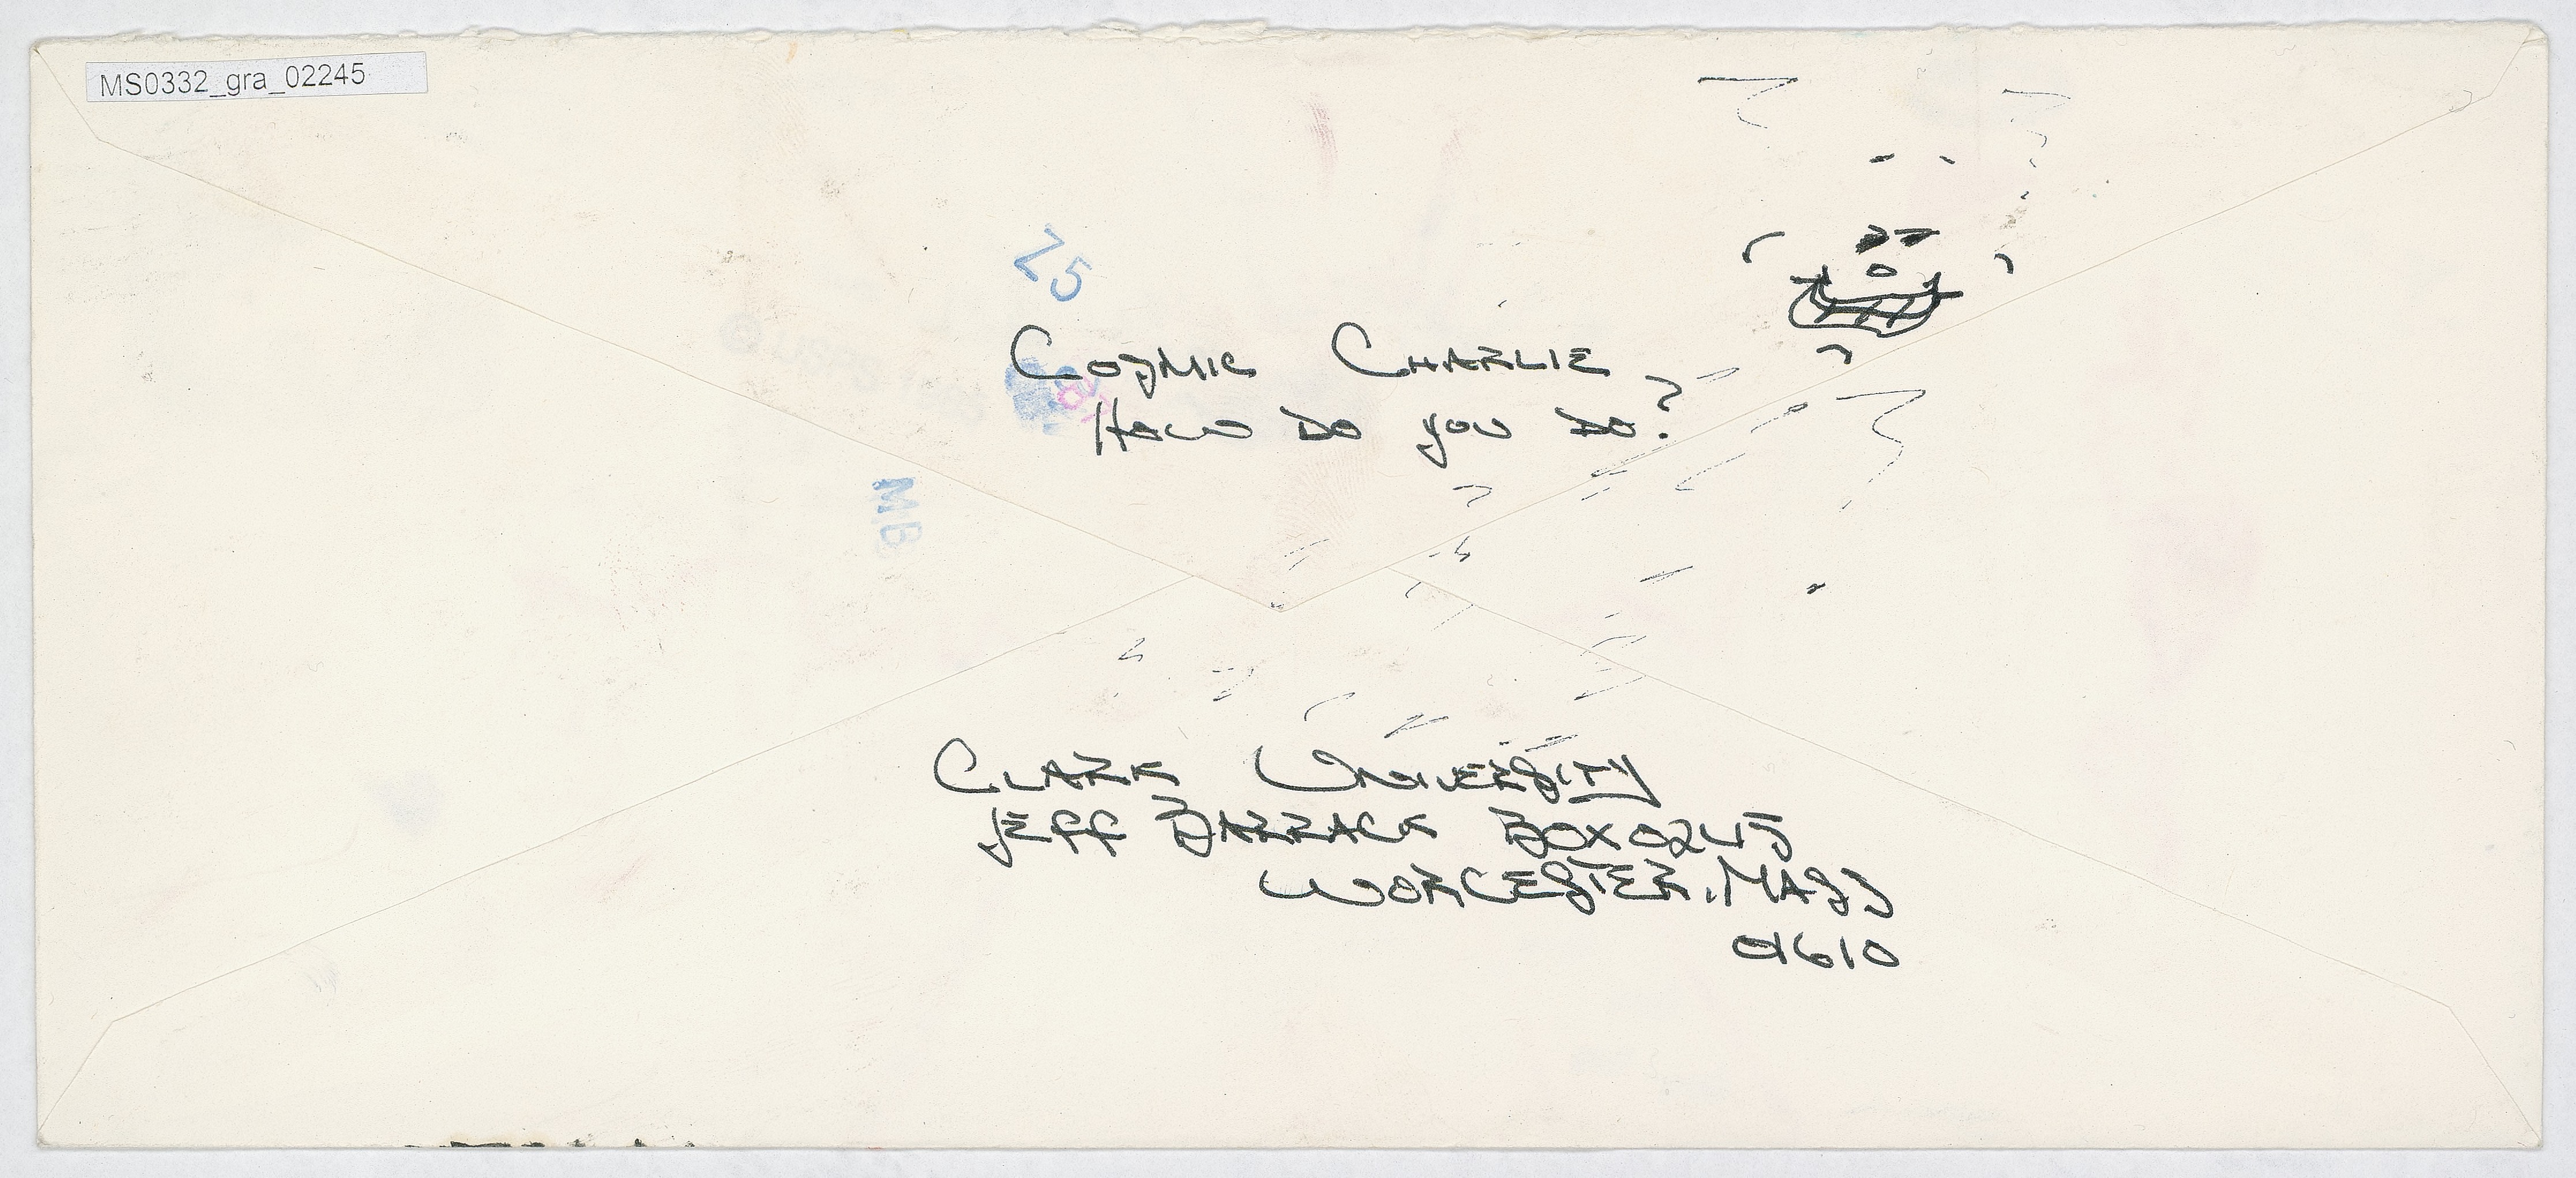 MS0332_gra_02245
25
COSMIC CHARLIE
HOW DO YOU DO?
MB
CLARK UNIVERSITY
JEFF BARRACK BOX 0245
WORCESTER, MASS
01610